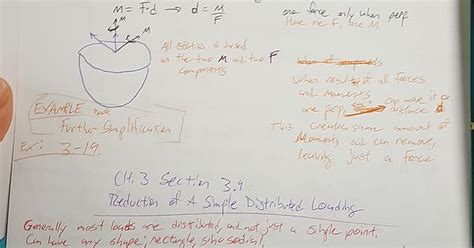 M = F·d → d = M/F
one force only when perp
have one F, one M
M
All statics is based
on the two M and two F
components
When all
When resultant all forces
and moments
are perp, can move it a
distance d
This creates same amount of
Moments and can remove,
leaving just a force
EXAMPLE
Further Simplification
Ex: 3-19.
CH. 3 Section 3.9
Reduction of A Simple Distributed Loading
Generally most loads are distributed, and not just a single point.
Can have any shape; rectangle, sinusodial,